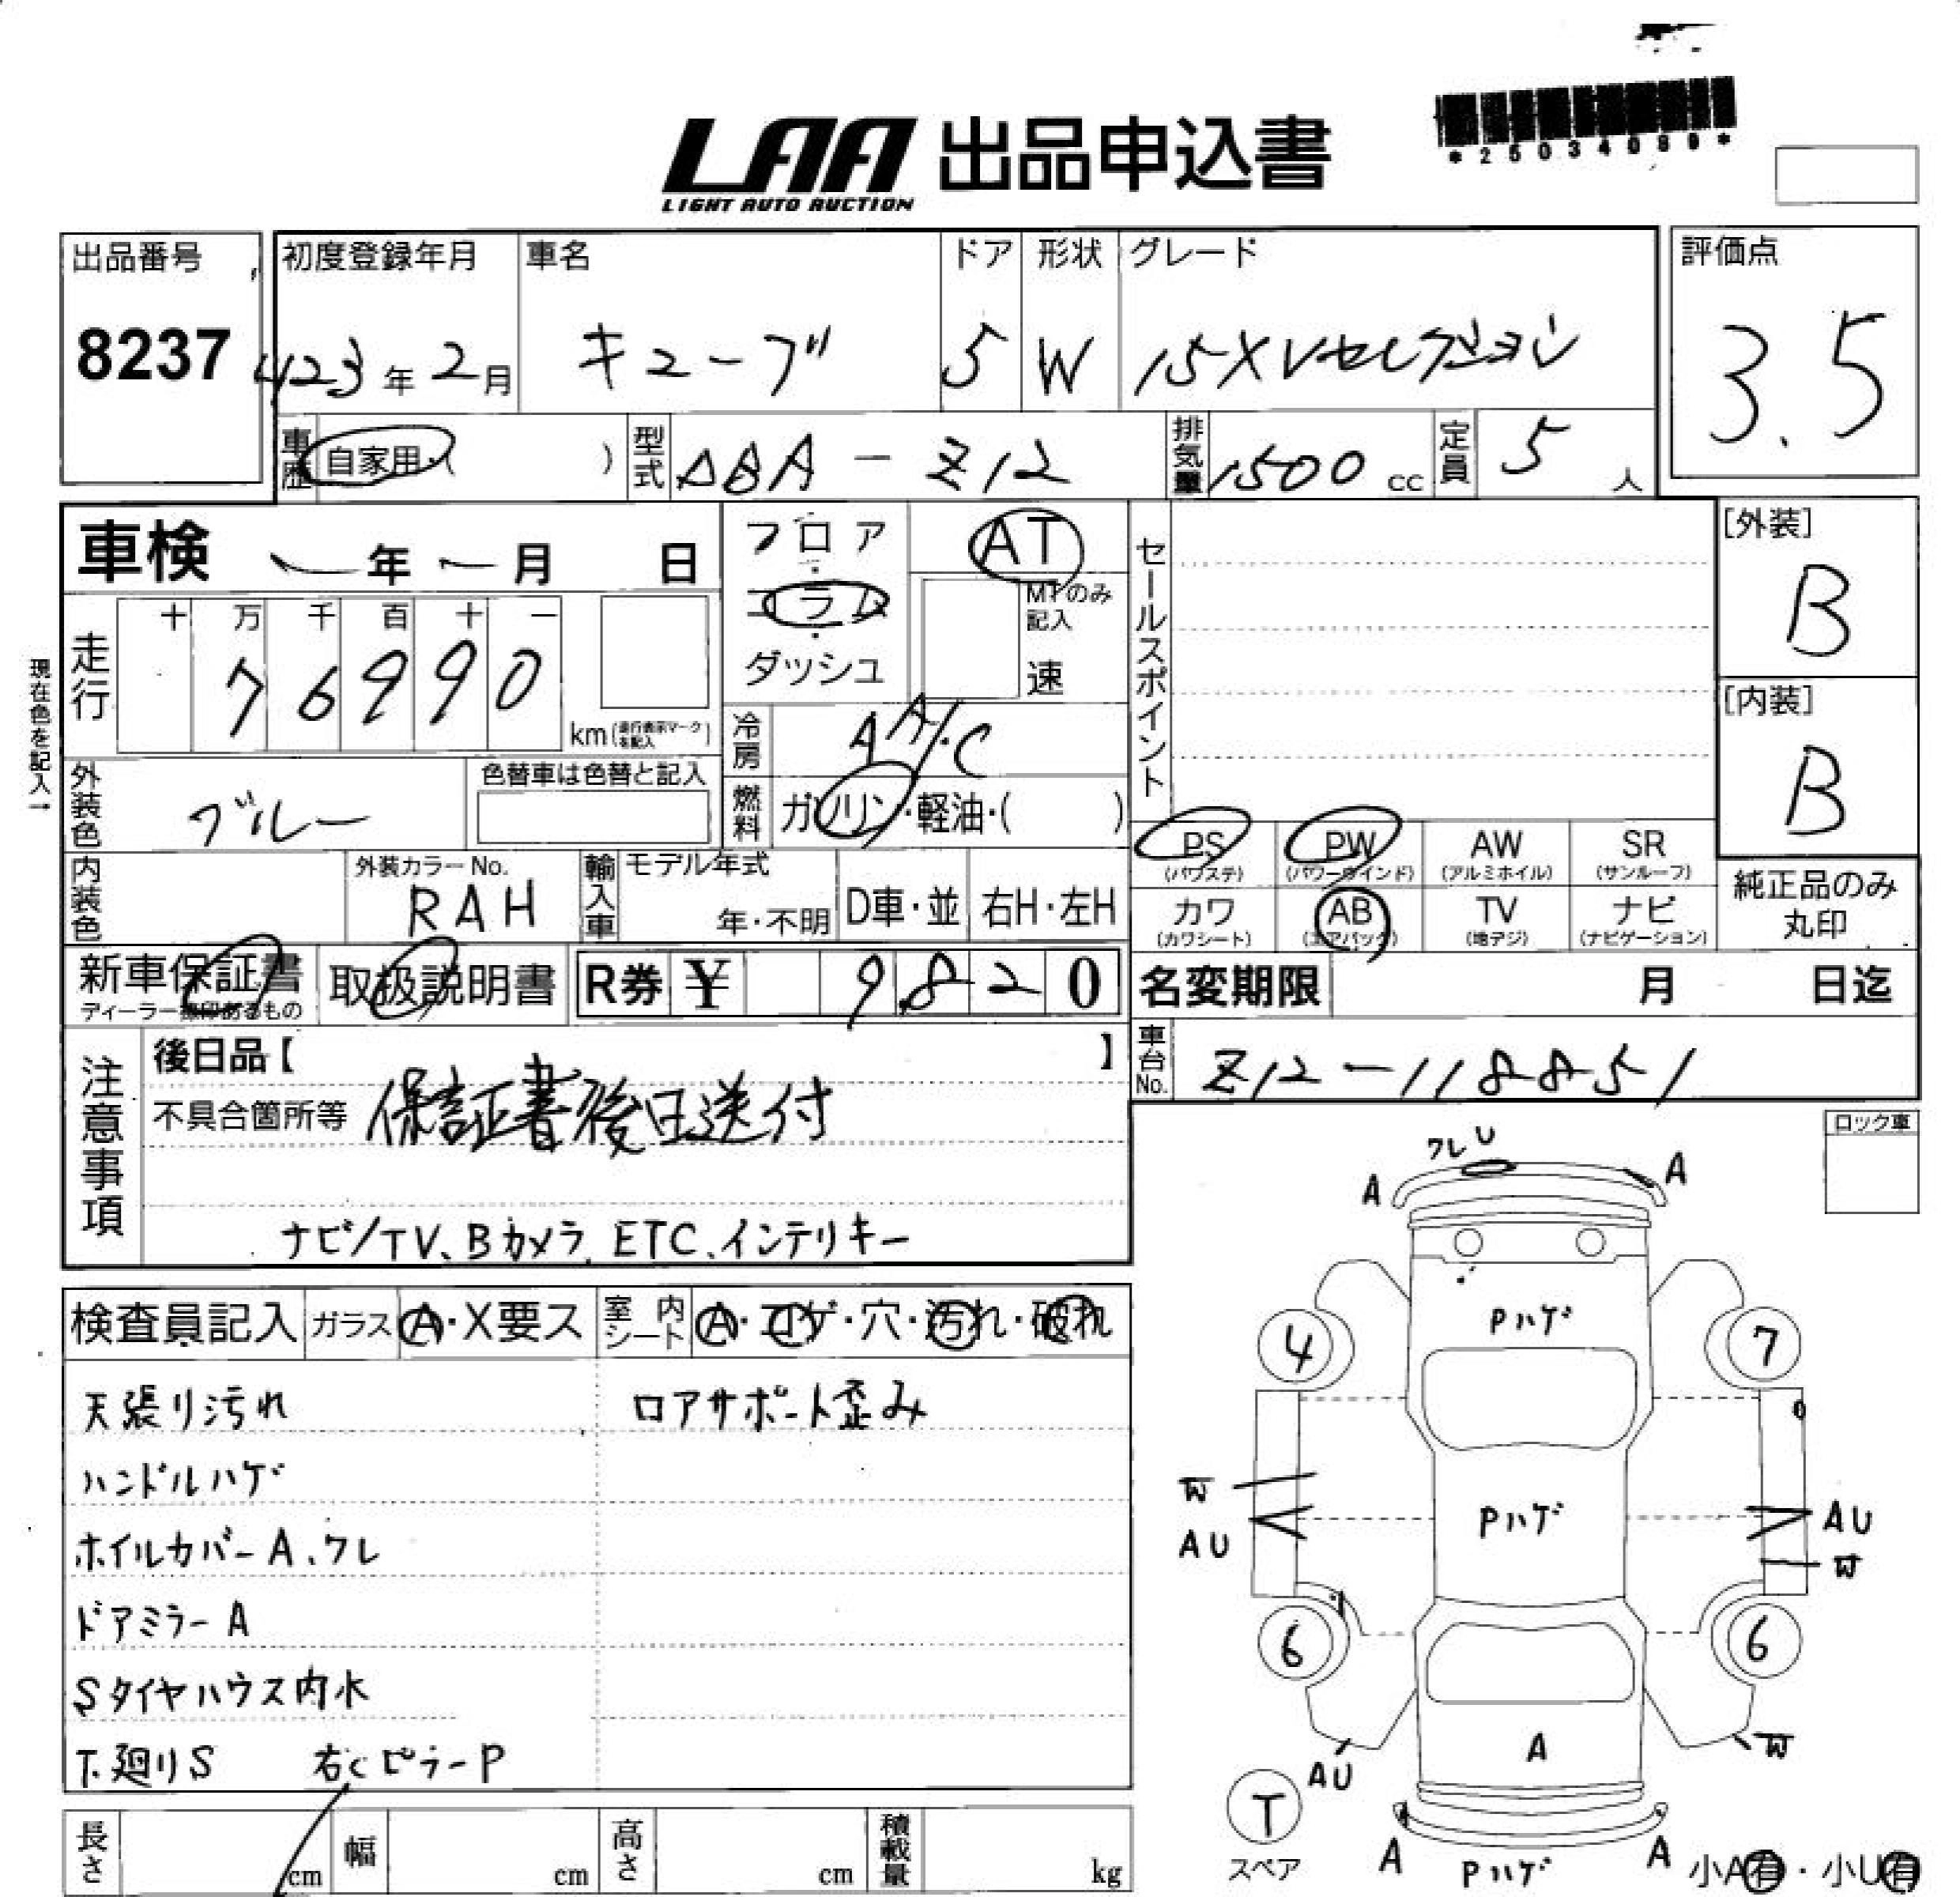 *25034089*
LAA 出品申込書
LIGHT AUTO AUCTION
出品番号 初度登録年月 車名 ドア 形状 グレード 評価点
8237 H23年2月 キューブ 5 W 15XVセレクション 3.5
車歴 自家用・( ) 型式 DBA-Z12 排気量 1500cc 定員 5人
車検 年 月 日 フロア AT セールスポイント [外装]
コラム MTのみ記入 B
ダッシュ 速
現在色を記入→
走行 十 万 千 百 十 一
76990
km(走行表示マークを記入) 冷房 AA/C [内装]
外装色 ブルー 色替車は色替と記入 燃料 ガソリン・軽油・( ) B
PS (パワステ) PW (パワーウインド) AW (アルミホイル) SR (サンルーフ)
内装色 外装カラーNo. RAH 輸入車 モデル年式 年・不明 D車・並 右H・左H
カワ (カワシート) AB (エアバッグ) TV (地デジ) ナビ (ナビゲーション) 純正品のみ丸印
新車保証書 取扱説明書 R券 ¥ 9,820 名変期限 月 日迄
ディーラー無印あるもの
車台No. Z12-118851
注意事項 後日品【 】
不具合箇所等 保証書後日送付
ナビ/TV、Bカメラ、ETC、インテリキー
ロック車
検査員記入 ガラス A・X要ス 室内シート A・コゲ・穴・汚れ・破れ
天張り汚れ ロアサポート歪み
ハンドルハゲ
ホイルカバーA、ワレ
ドアミラーA
Sタイヤハウス内水
下廻りS 右CピラーP
長さ cm 幅 cm 高さ cm 積載量 kg
ワレ U
A A
Pハゲ
4 7
W
Pハゲ
AU AU
W
6 6
A
AU W
T
スペア
A Pハゲ A
小A有・小U有